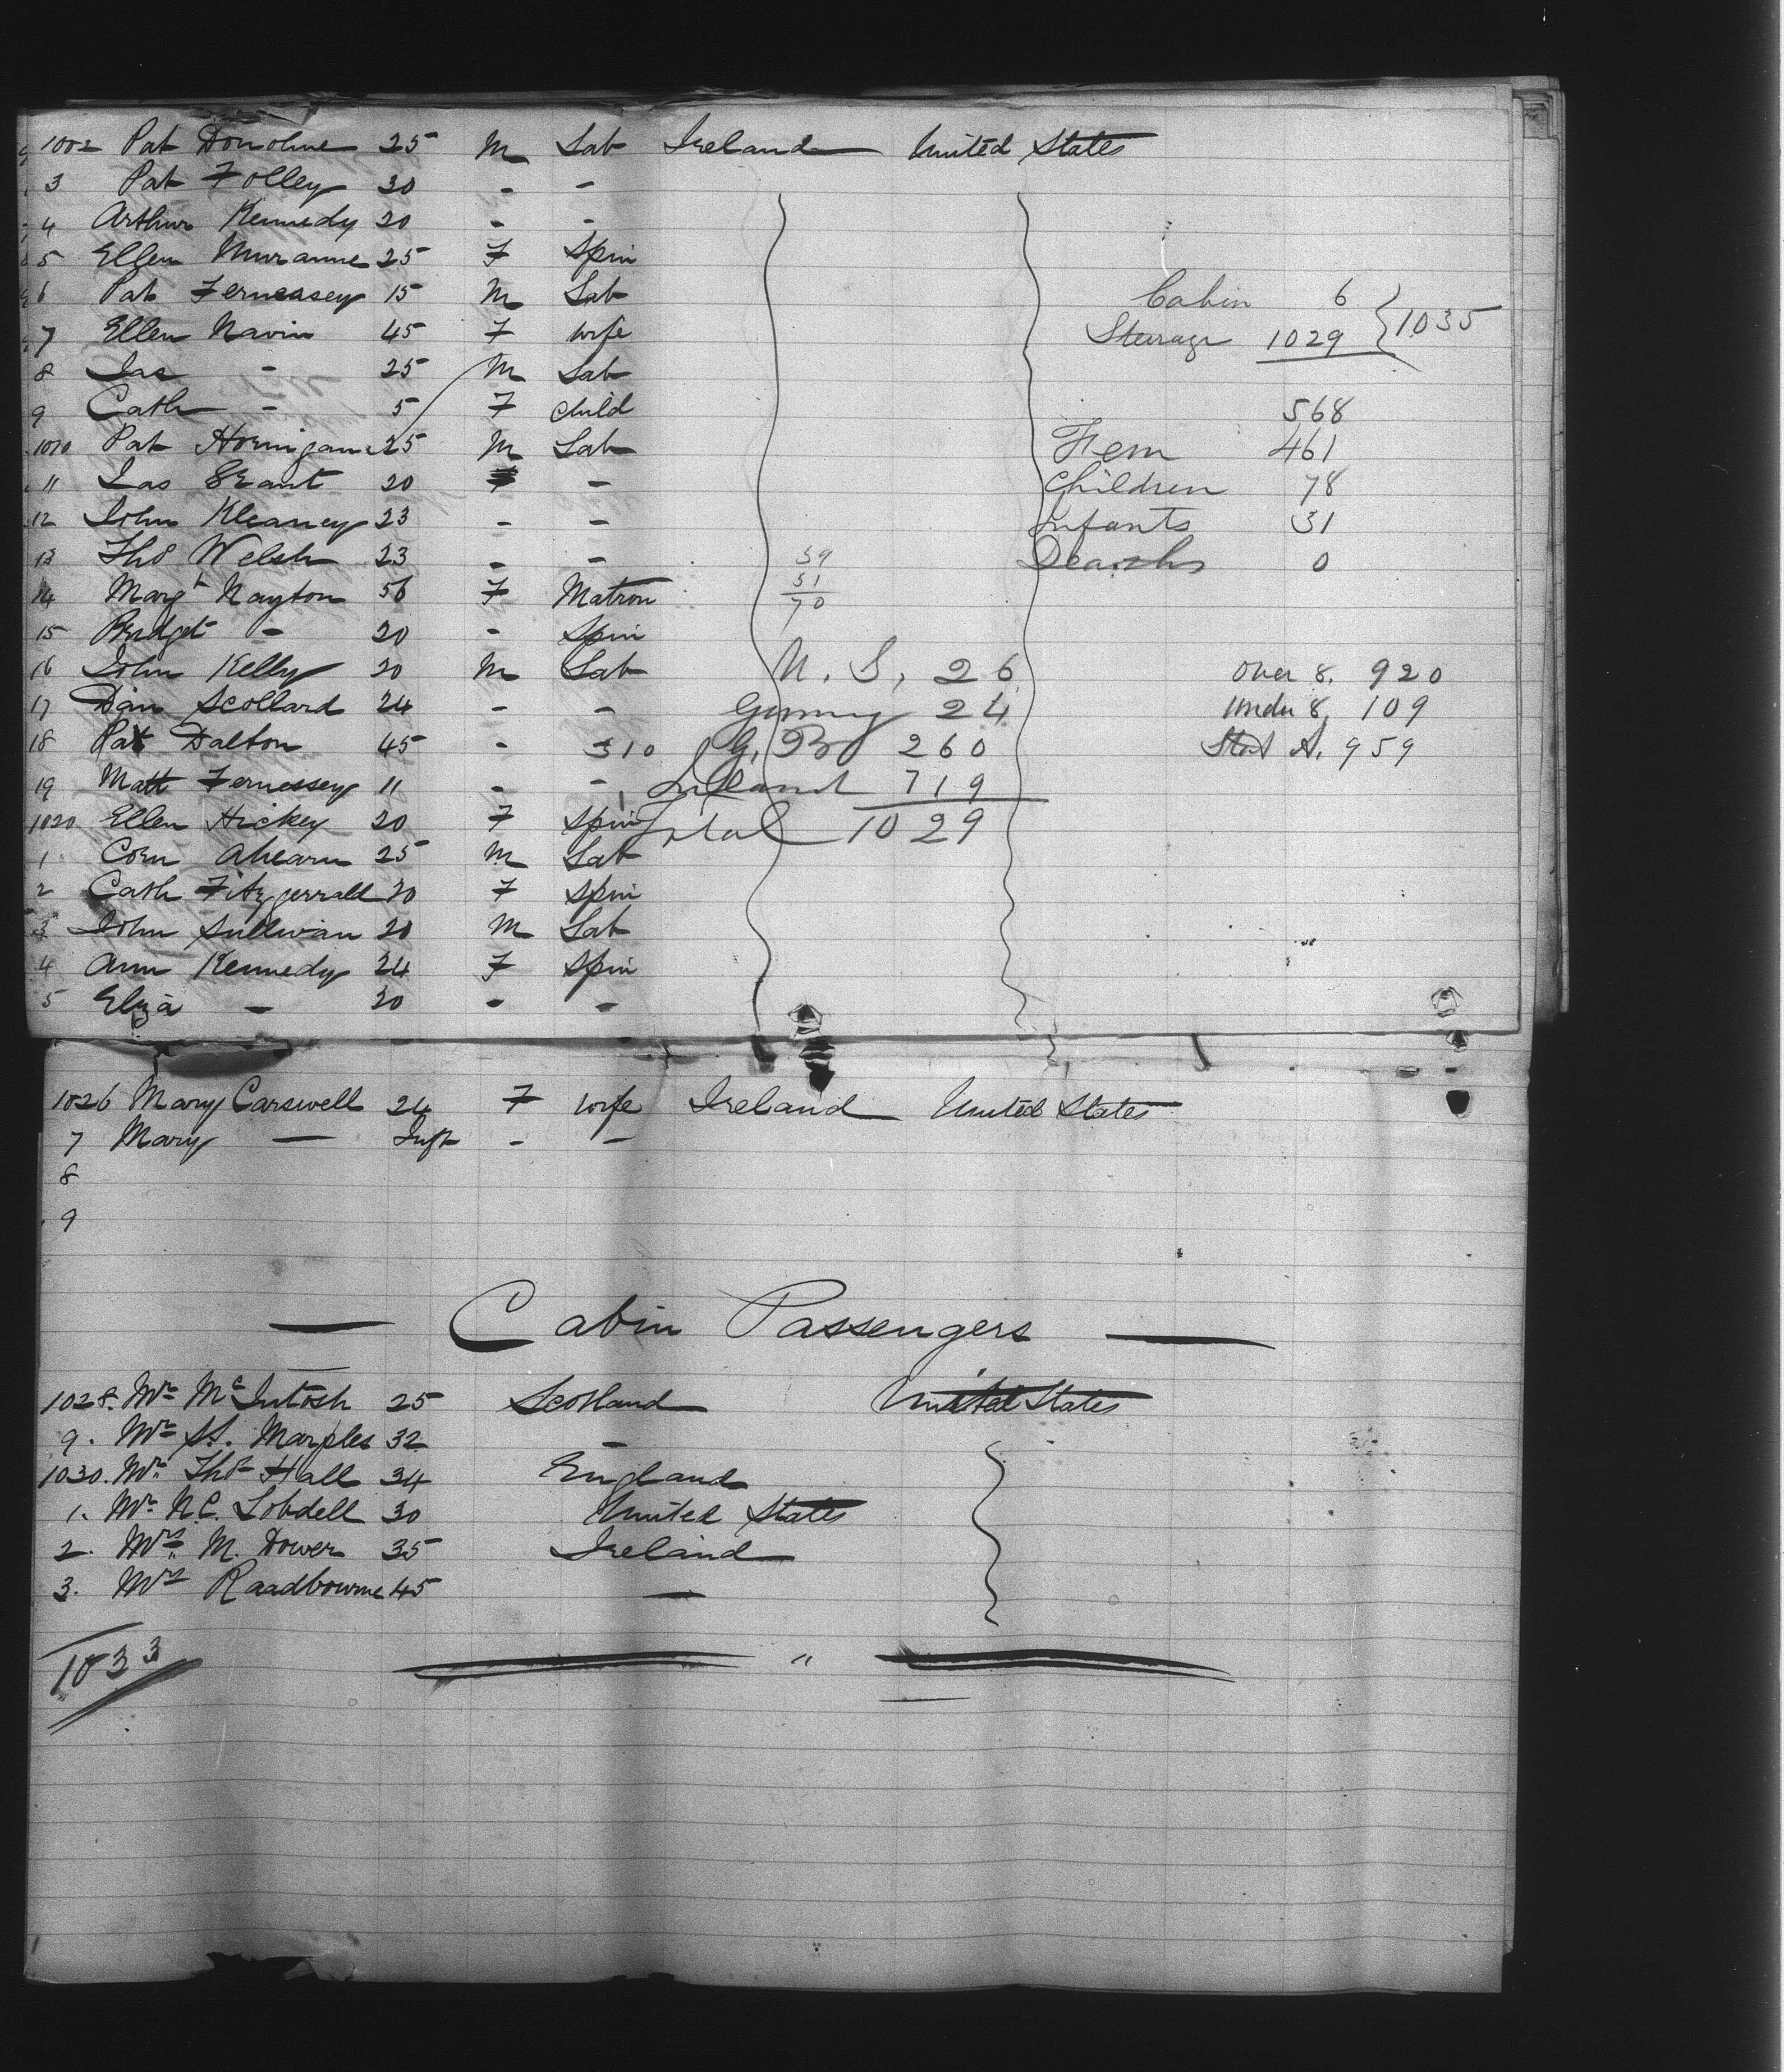 1002 Pat Donohue 25 M Lab Ireland United States
3 Pat Folley 30 - -
4 Arthur Kennedy 20 - -
5 Ellen Muranne 25 F Spin
6 Pat Fernessey 15 M Lab Cabin 6
7 Ellen Navin 45 F wife Stearage 1029 } 1035
8 Jas - 25 M Lab
9 Cath - 5 F Child 568
1010 Pat Hornigan 25 M Lab Fem 461
11 Jas Grant 20 - Children 78
12 John Kleaney 23 - - Infants 31
13 Thos Welsh 23 - - 39 Deaths 0
14 Margt Nayton 56 F Matron 31
70
15 Bridget - 20 - Spin
16 John Kelly 20 M Lab U. S. 26 Over 8. 920
17 Dan Scollard 24 - - Germy 24 Under 8, 109
18 Pat Dalton 45 - 310 G. B 260 Stat A. 959
19 Matt Fernessey 11 - - Ireland 719
1020 Ellen Hickey 20 F Spin Total 1029
1 Corn Ahearn 25 M Lab
2 Cath Fitzgerrald 30 F Spin
3 John Sullivan 20 M Lab
4 Ann Kennedy 24 F Spin
5 Eliza - 20 - -
1026 Mary Carswell 24 F wife Ireland United States
7 Mary — Inft - -
8
9
— Cabin Passengers —
1028. Mr McIntosh 25 Scotland United States
9. Mr St. Marples 32 -
1030. Mr Thos Hall 34 England
1. Mr N.C. Lobdell 30 United States
2. Mrs M. Dower 35 Ireland
3. Mrs Raadbourne 45 —
1033 "